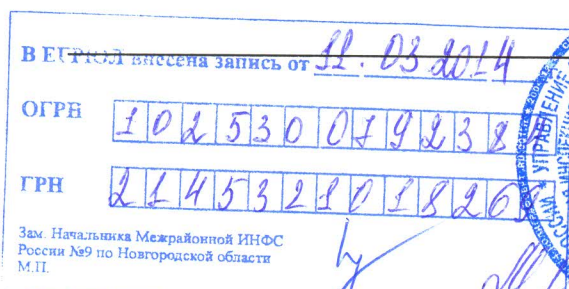 В ЕГРЮЛ внесена запись от 11.03 2014
ОГРН 102530079238
ГРН 214532101826
Зам. Начальника Межрайонной ИНФС
России №9 по Новгородской области
М.П.
УПРАВЛЕНИЕ